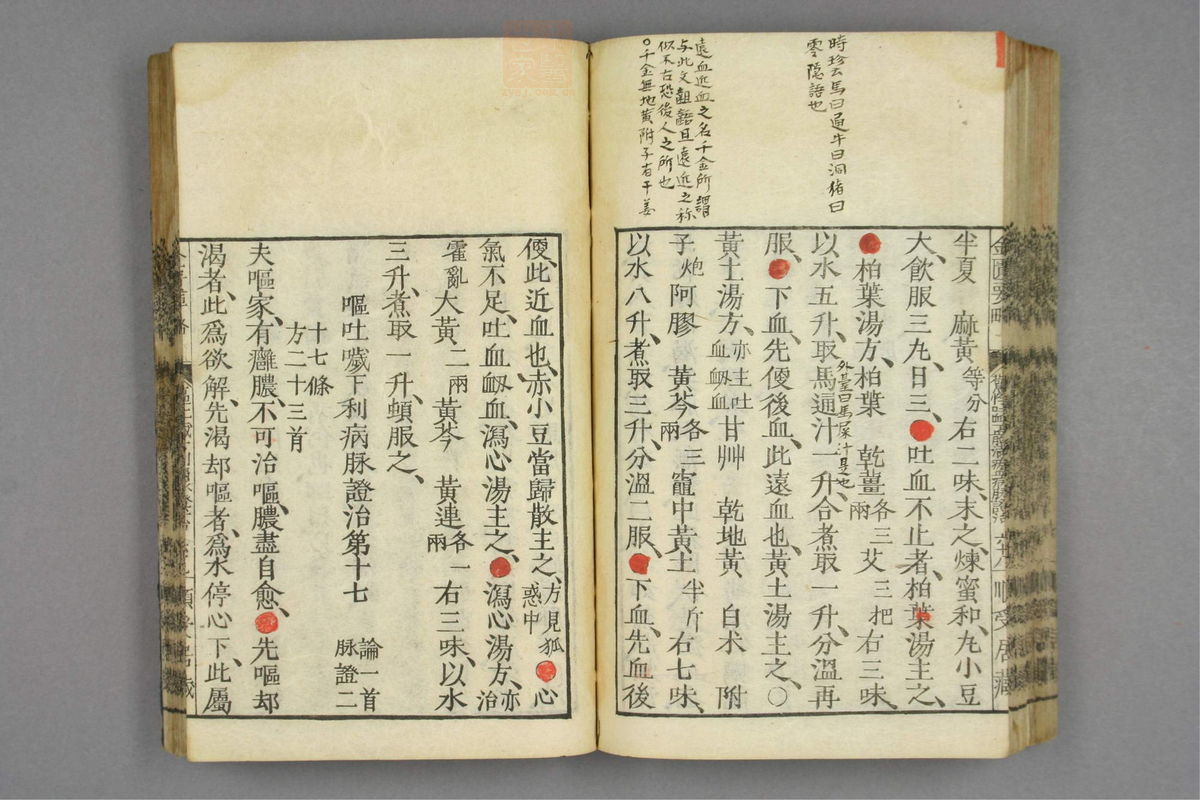 時珍云馬曰通牛曰洞猪曰
零隠語也
遠血近血之名千金所謂
与此文齟齬且遠近之称
似不古恐後人之所也
○千金無地黄附子有干姜
半夏 麻黃等分右二味、末之、煉蜜和、丸小豆
大、飲服三丸、日三、吐血不止者、柏葉湯主之、
柏葉湯方、柏葉 乾薑各三兩艾三把右三味、
以水五升、取馬通汁一升、合煮取一升、分溫再
外臺曰馬屎汁是也
服、下血、先便後血、此遠血也、黃土湯主之、○
黃土湯方、亦主吐血衂血甘艸 乾地黃 白术 附
子炮阿膠 黃芩各三兩竈中黃土半斤右七味、
以水八升、煮取三升、分溫二服、下血、先血後
便、此近血也、赤小豆當歸散主之、方見狐惑中心
氣不足、吐血衂血、瀉心湯主之、瀉心湯方、亦治
霍亂大黃二兩黃芩 黃連各一兩右三味、以水
三升、煮取一升、頓服之、
嘔吐噦下利病脉證治第十七 論一首脉證二
十七條方二十三首
夫嘔家、有癰膿、不可治嘔、膿盡自愈、先嘔却
渴者、此爲欲解、先渴却嘔者、爲水停心下、此屬
順受居藏